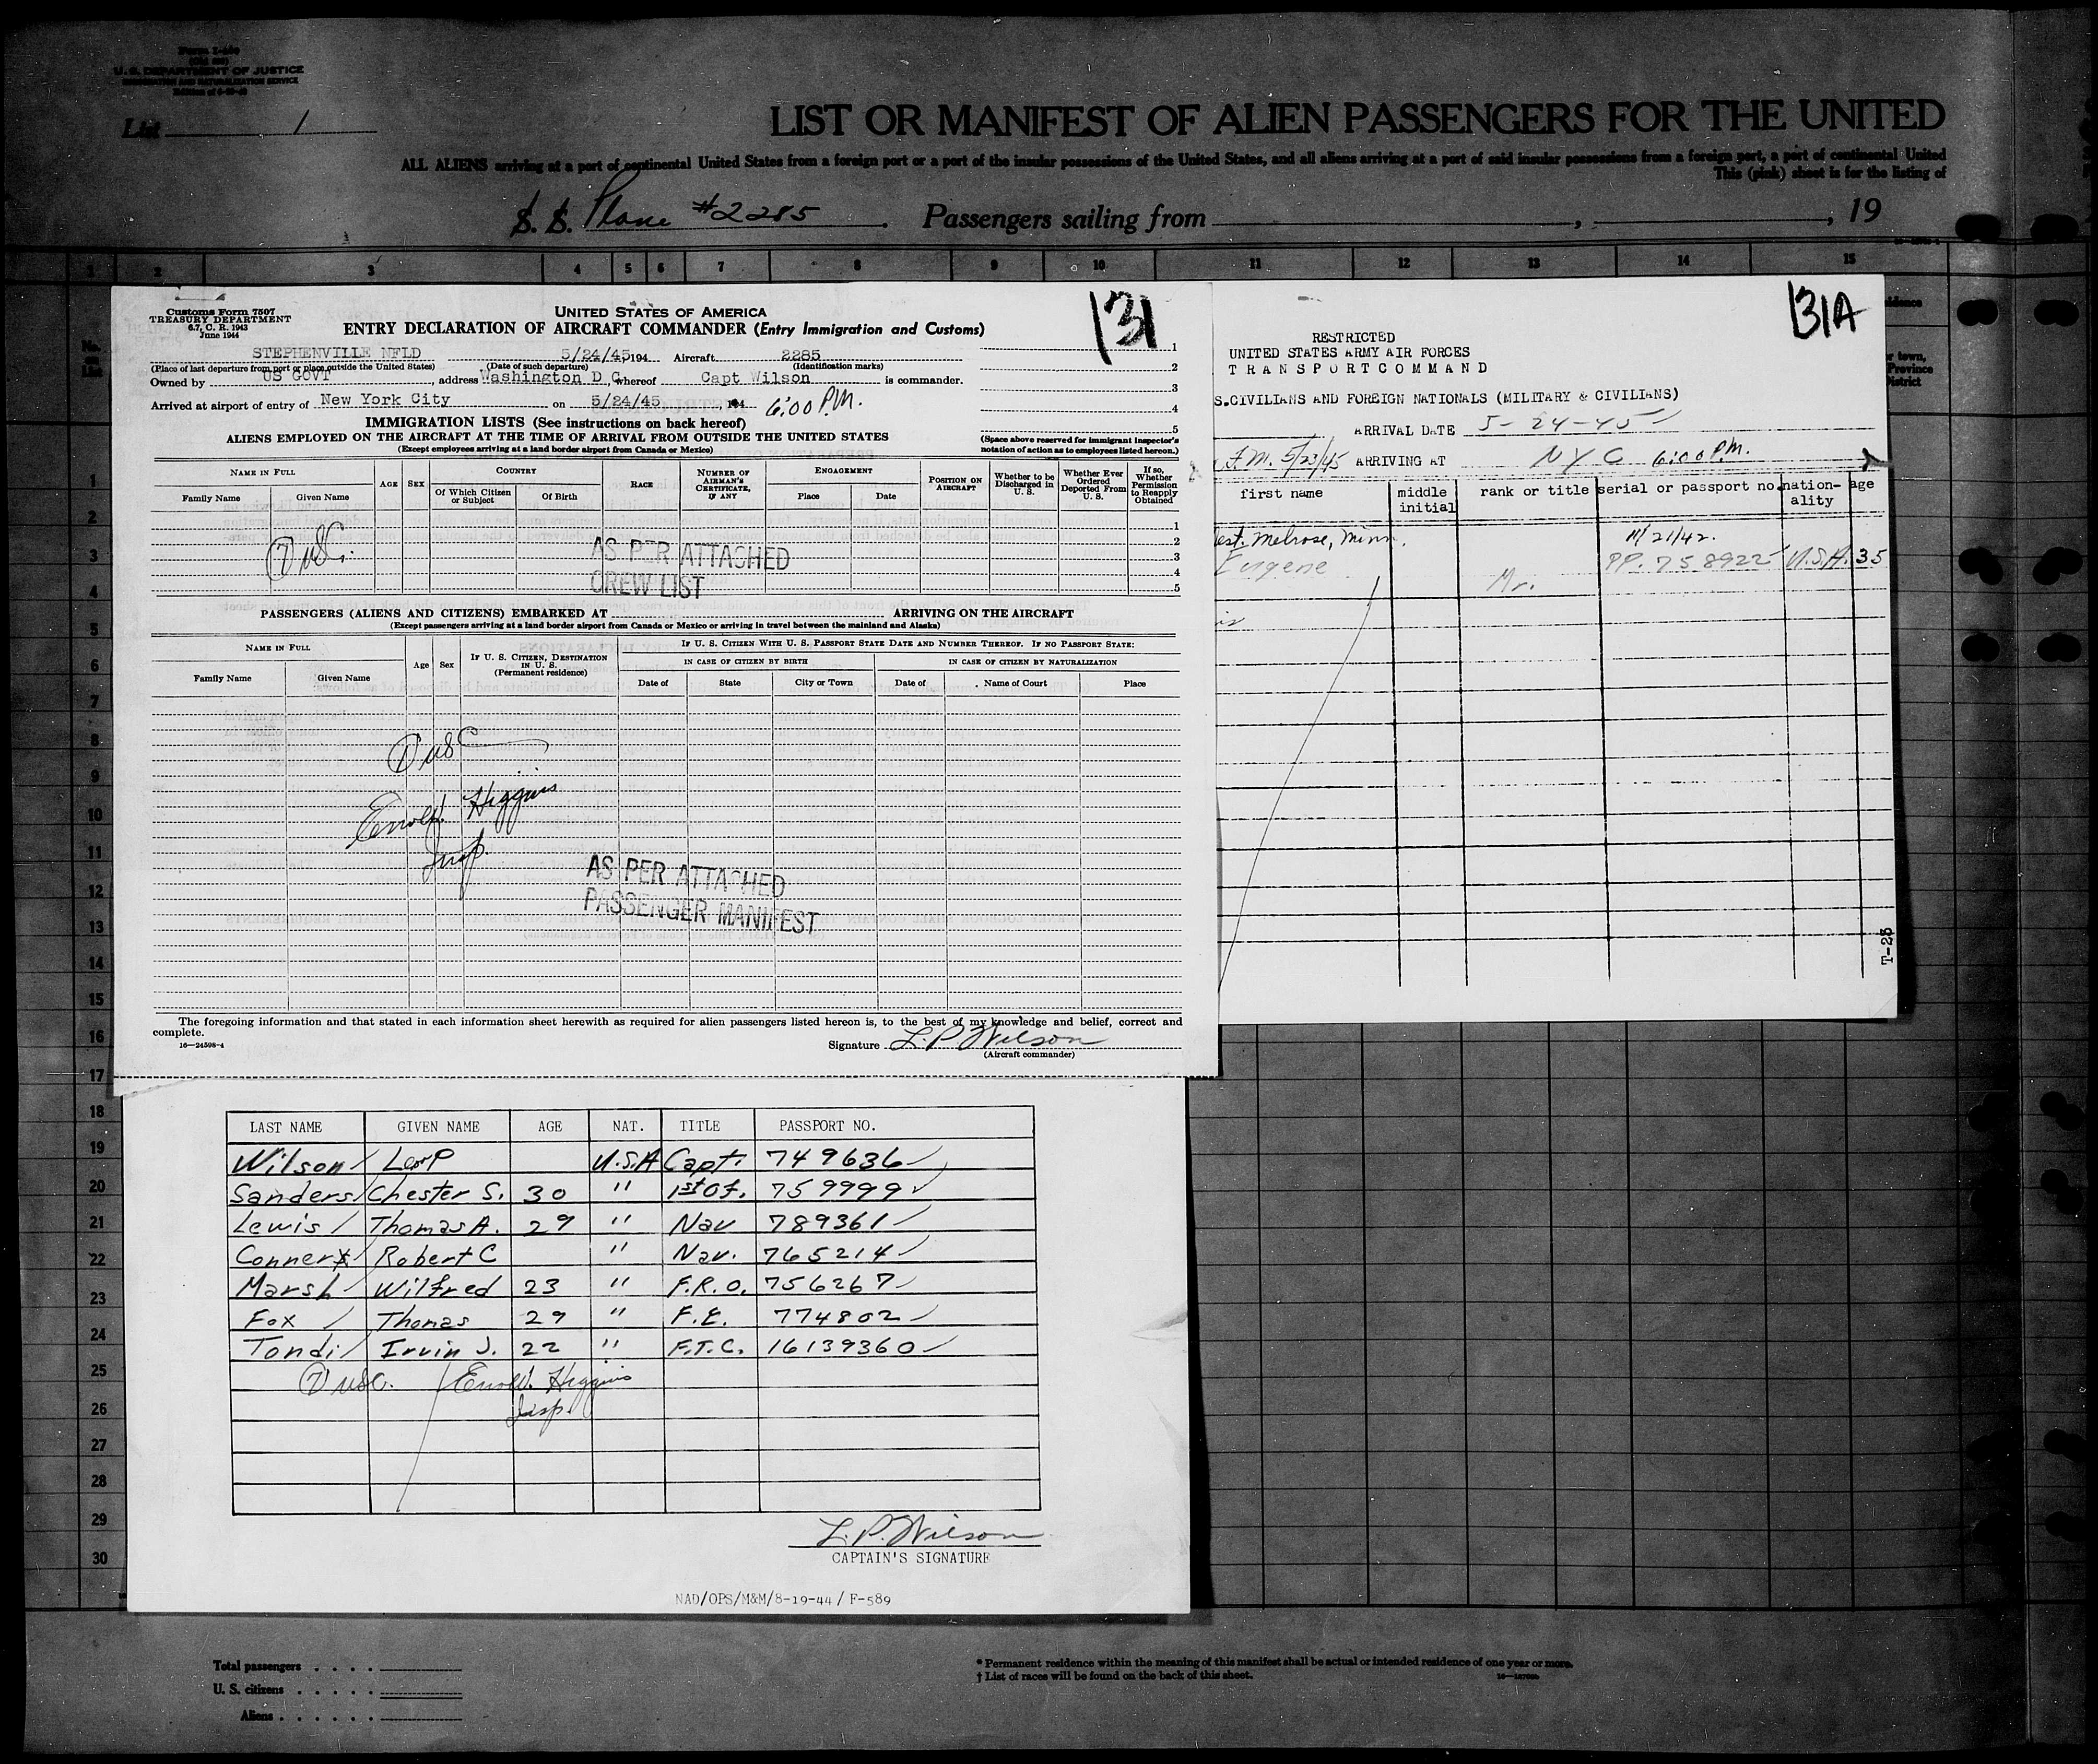 U. S. DEPARTMENT OF JUSTICE
IMMIGRATION AND NATURALIZATION SERVICE
List 1
LIST OR MANIFEST OF ALIEN PASSENGERS FOR THE UNITED
ALL ALIENS arriving at a port of continental United States from a foreign port or a port of the insular possessions of the United States, and all aliens arriving at a port of said insular possessions from a foreign port, a port of continental United
This (pink) sheet is for the listing of
S. S. Plane #2285. Passengers sailing from , , 19
1 2 3 4 5 6 7 8 9 10 11 12 13 14 15
Customs Form 7507
TREASURY DEPARTMENT
6.7, C. R. 1943
June 1944
UNITED STATES OF AMERICA
ENTRY DECLARATION OF AIRCRAFT COMMANDER (Entry Immigration and Customs)
131
STEPHENVILLE NFLD 5/24/45 194 Aircraft 2285
(Place of last departure from port or place outside the United States) (Date of such departure) (Identification marks)
Owned by US GOVT, address Washington D C whereof Capt Wilson is commander.
Arrived at airport of entry of New York City on 5/24/45, 194 6:00 P.M.
1
2
3
4
5
(Space above reserved for immigrant inspector's notation of action as to employees listed hereon.)
IMMIGRATION LISTS (See instructions on back hereof)
ALIENS EMPLOYED ON THE AIRCRAFT AT THE TIME OF ARRIVAL FROM OUTSIDE THE UNITED STATES
(Except employees arriving at a land border airport from Canada or Mexico)
NAME IN FULL AGE SEX COUNTRY RACE NUMBER OF AIRMAN'S CERTIFICATE, IF ANY ENGAGEMENT POSITION ON AIRCRAFT Whether to be Discharged in U. S. Whether Ever Ordered Deported From U. S. If so, Whether Permission to Reapply Obtained
Family Name Given Name Of Which Citizen or Subject Of Birth Place Date
1
2
3
4
5
7 USC.
AS PER ATTACHED
CREW LIST
PASSENGERS (ALIENS AND CITIZENS) EMBARKED AT ARRIVING ON THE AIRCRAFT
(Except passengers arriving at a land border airport from Canada or Mexico or arriving in travel between the mainland and Alaska)
NAME IN FULL Age Sex IF U. S. CITIZEN, DESTINATION IN U. S. (Permanent residence) IF U. S. CITIZEN WITH U. S. PASSPORT STATE DATE AND NUMBER THEREOF. IF NO PASSPORT STATE:
IN CASE OF CITIZEN BY BIRTH IN CASE OF CITIZEN BY NATURALIZATION
Family Name Given Name Date of State City or Town Date of Name of Court Place
1 USC
Errol J. Higgins
Insp.
AS PER ATTACHED
PASSENGER MANIFEST
The foregoing information and that stated in each information sheet herewith as required for alien passengers listed hereon is, to the best of my knowledge and belief, correct and
complete.
16—24598-4
Signature L. P. Wilson
(Aircraft commander)
131A
RESTRICTED
UNITED STATES ARMY AIR FORCES
T R A N S P O R T C O M M A N D
S.CIVILIANS AND FOREIGN NATIONALS (MILITARY & CIVILIANS)
ARRIVAL DATE 5-24-45
F.M. 5/23/45 ARRIVING AT NYC 6:00 P.M.
first name middle initial rank or title serial or passport no. nation-ality age
est. Melrose, Minn. 11/21/42.
Eugene Mr. PP. 758922 U.S.A. 35
T-23
LAST NAME GIVEN NAME AGE NAT. TITLE PASSPORT NO.
Wilson Leo P U.S.A Capt. 749636
Sanders Chester S. 30 " 1st Of. 759999
Lewis Thomas A. 29 " Nav 789361
Conner Robert C " Nav. 765214
Marsh Wilfred 23 " F.R.O. 756267
Fox Thomas 29 " F.E. 774802
Tondi Irvin J. 22 " F.T.C. 16139360
7 USC. Errol J. Higgins
Insp.
L. P. Wilson
CAPTAIN'S SIGNATURE
NAD/OPS/M&M/8-19-44 / F-589
1
2
3
4
5
6
7
8
9
10
11
12
13
14
15
16
17
18
19
20
21
22
23
24
25
26
27
28
29
30
Total passengers
U. S. citizens
Aliens
* Permanent residence within the meaning of this manifest shall be actual or intended residence of one year or more.
† List of races will be found on the back of this sheet.